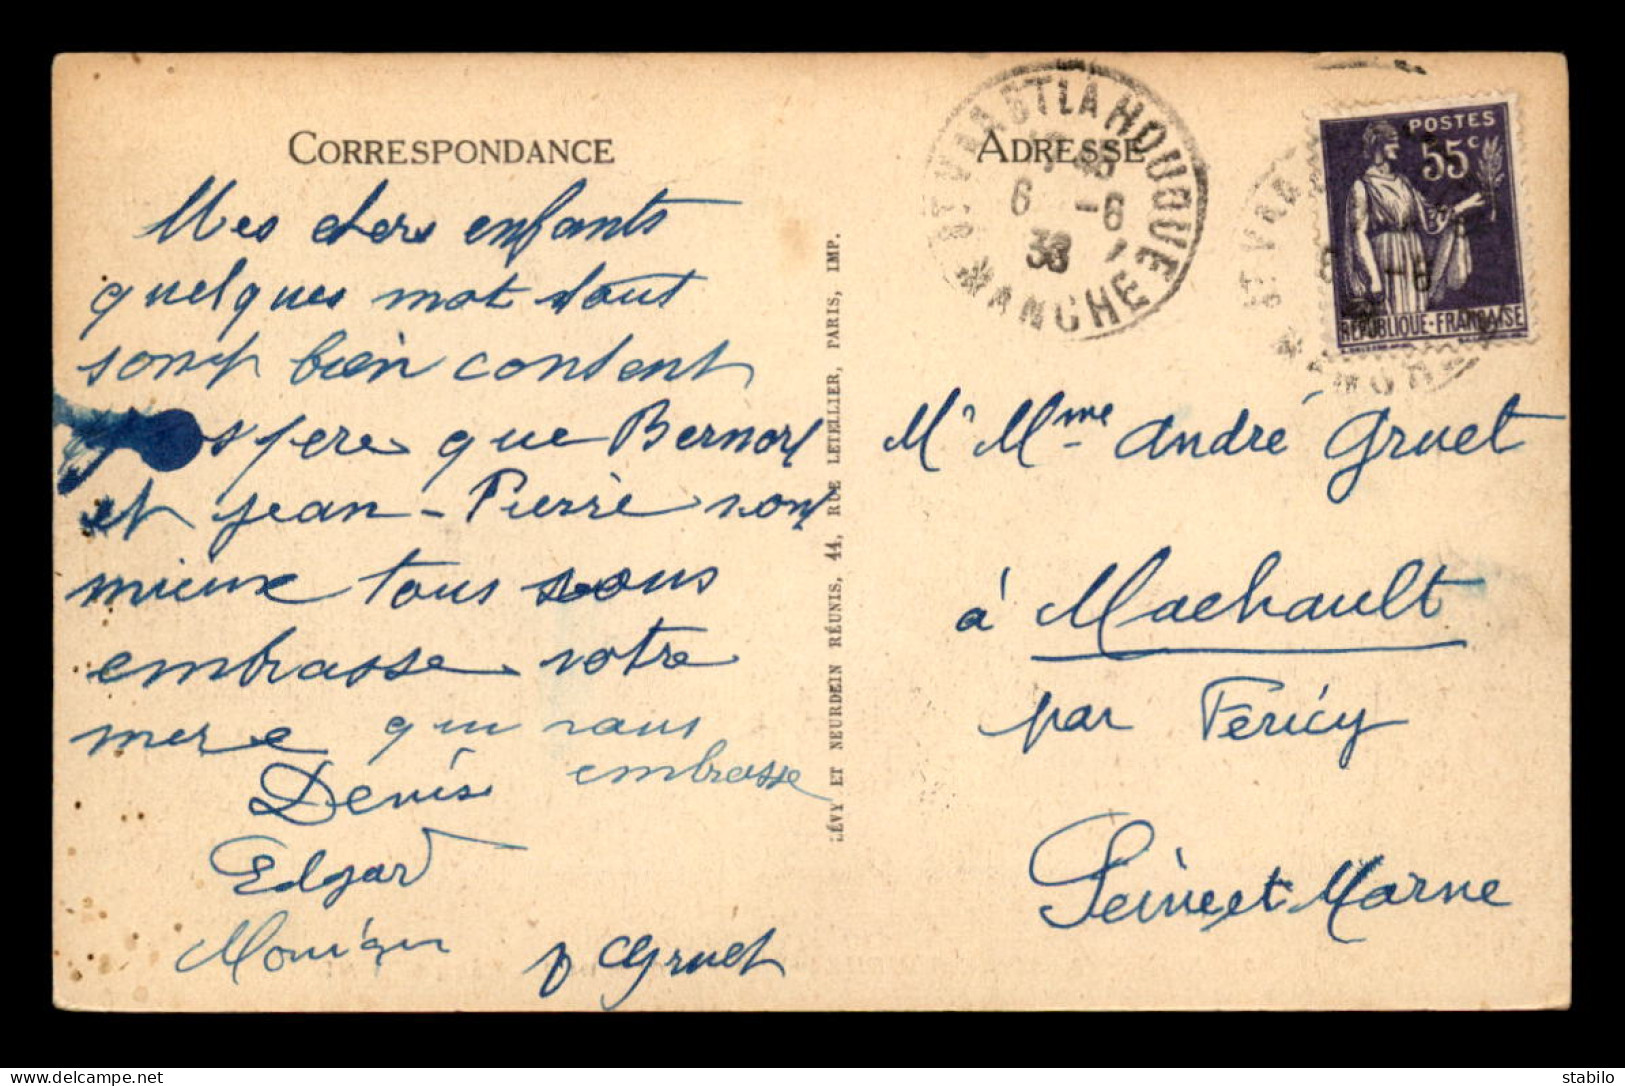 CORRESPONDANCE
Mes chers enfants
quelques mot tout
sont bien content
j'espere que Bernard
et jean-Pierre vont
mieux tous vous
embrasse votre
mere qui vous
embrasse
Denis
Edgar
Monique
Gruet
LÉVY ET NEURDEIN RÉUNIS, 44, RUE LETELLIER, PARIS, IMP.
ADRESSE
ST VAAST LA HOUGUE
6 -6
38
MANCHE
POSTES
55c
REPUBLIQUE-FRANÇAISE
Mr Mme André Gruet
à Machault
par Féricy
Seine et Marne
delcampe.net
stabilo